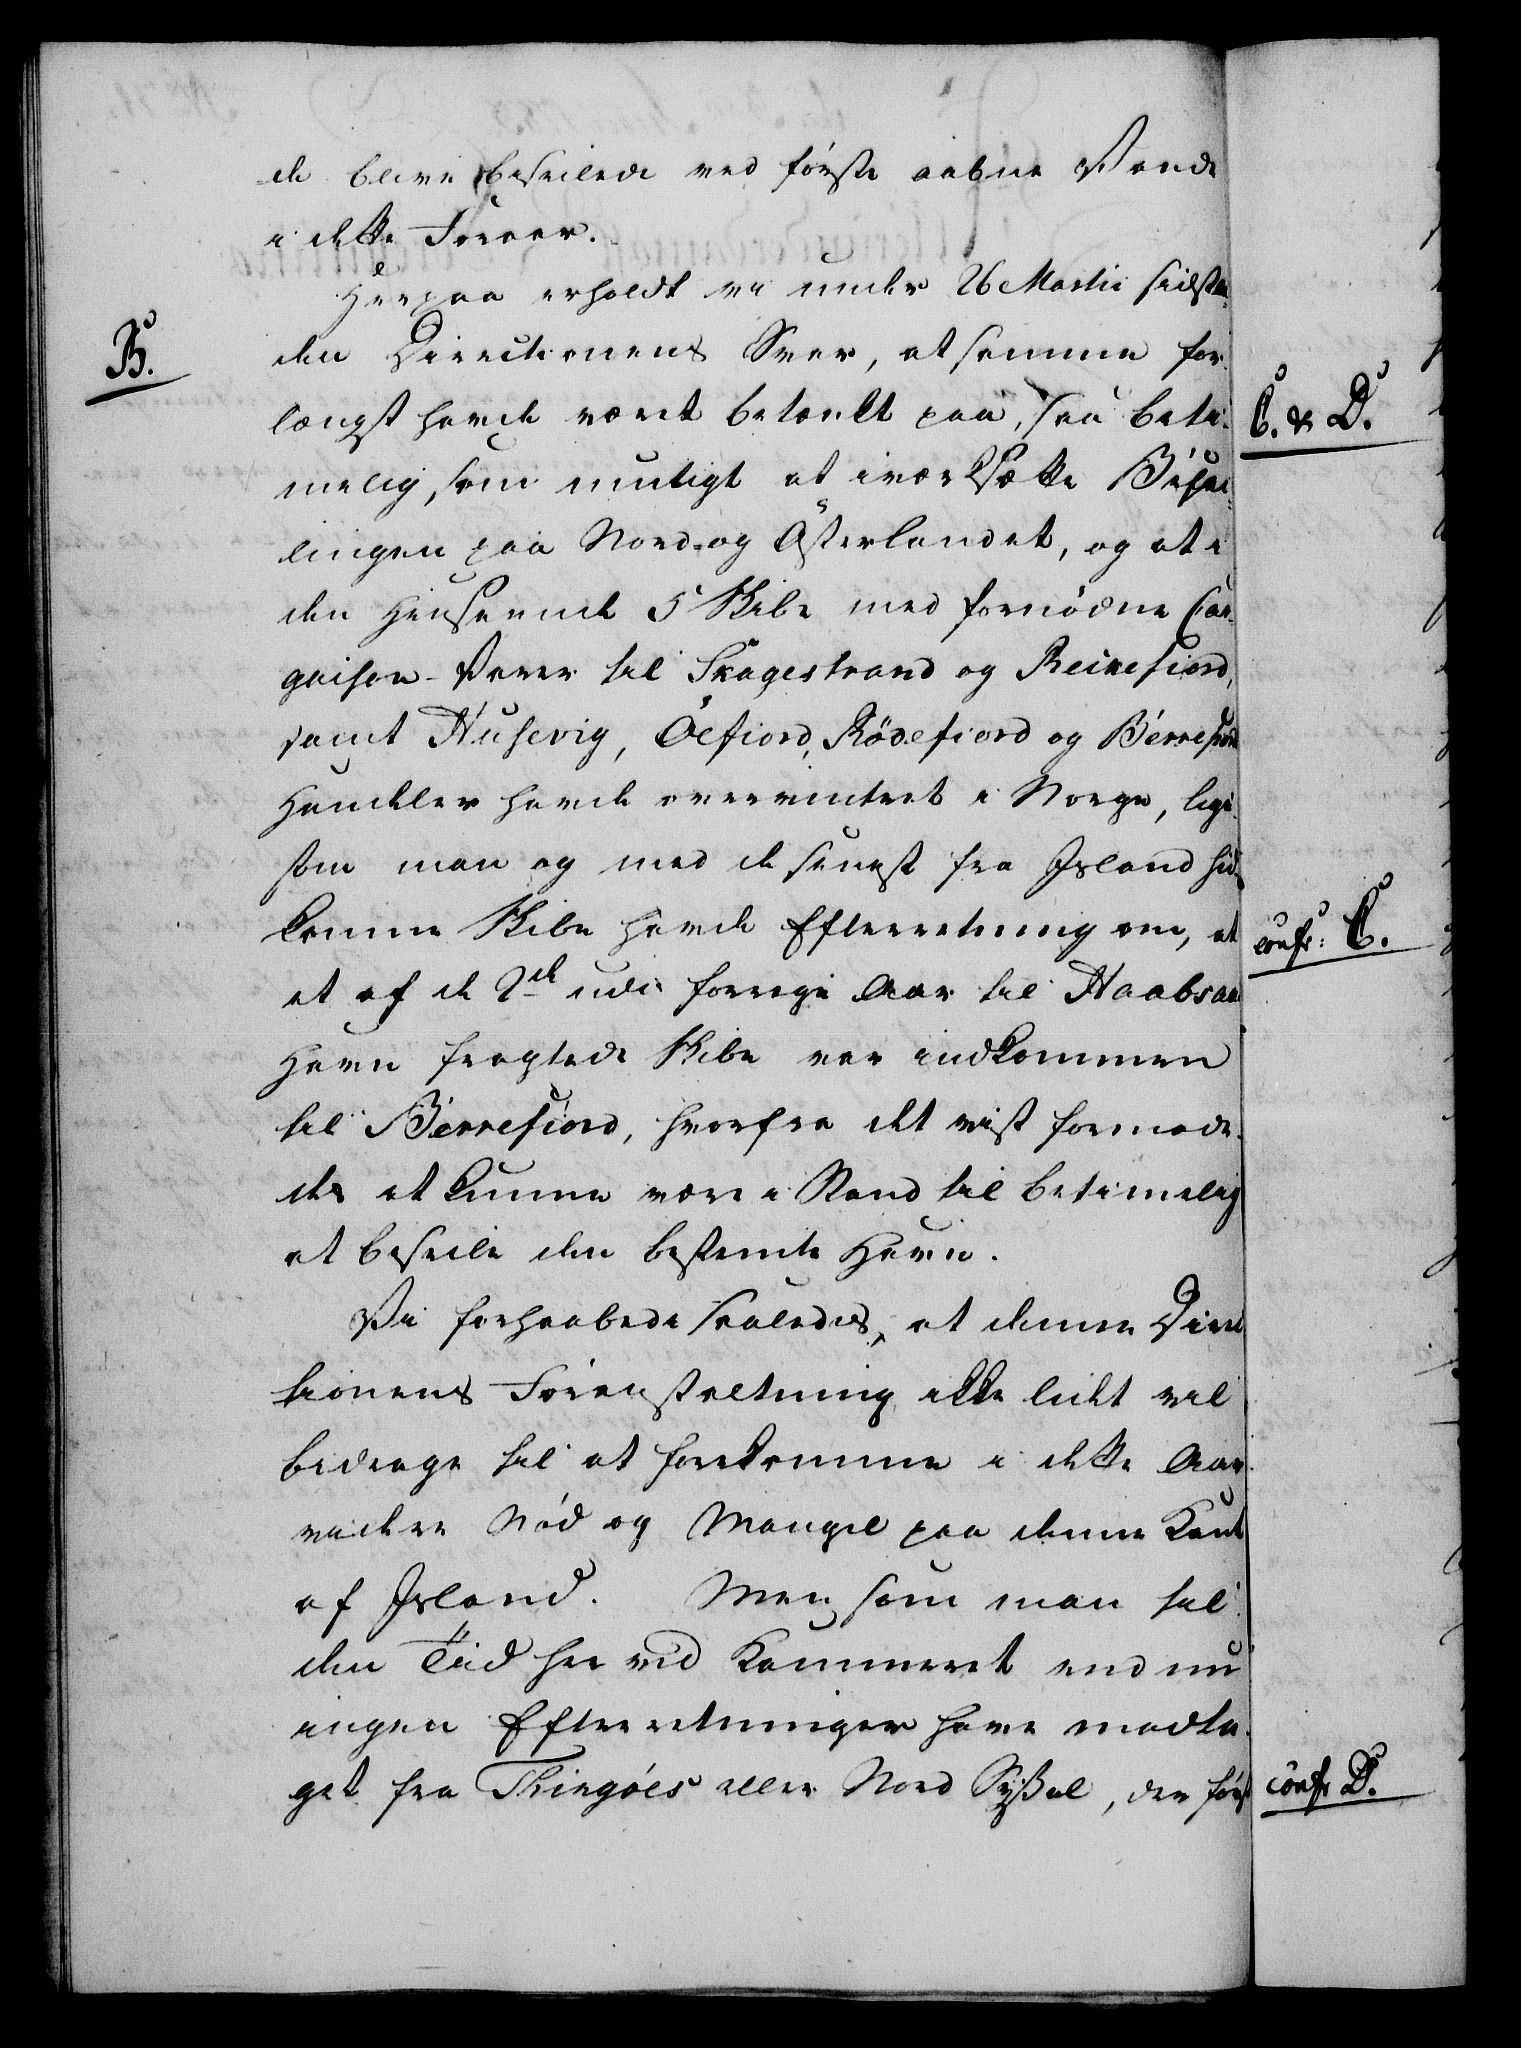 de bleve beseilede ved første aabne Vande
i dette Foraar.
Herpaa erholdt vi under 26 Martii sidst
B.
den Directionens Svar, at samme for-
længst havde været betænkt paa, saa beti-
C. & D.
melig, som muligt at iværksætte Besei-
lingen paa Nord- og Österlandet, og at i
den Henseende 5 Skibe med fornødne Car-
gaison-Varer til Skagestrand og Reikefiord,
samt Husevig, Öefiord, Rödefiord og Berrefiord
Handler havde overvintret i Norge, lige-
som man og med de seenest fra Island hid-
komne Skibe havde Efterretning om, at
confr: C.
et af de 2de udi forrige Aar til Haabsan
Havn fragtede Skibe var indkommen
til Berrefiord, hvorfra det vist formode-
des at kunne være i Stand til betimelig
at beseile den bestemte Havn.
Vi forhaabede saaledes, at denne Direc
tionens Foranstaltning ikke lidet vil
bidrage til at forekomme i dette Aar
videre Nød og Mangel paa denne Kant
af Island. Men som man til
den Tiid her ved Kammeret end nu
ingen Efterretninger have modta-
get fra Thingöes eller Nord Syssel, der først
confr D.